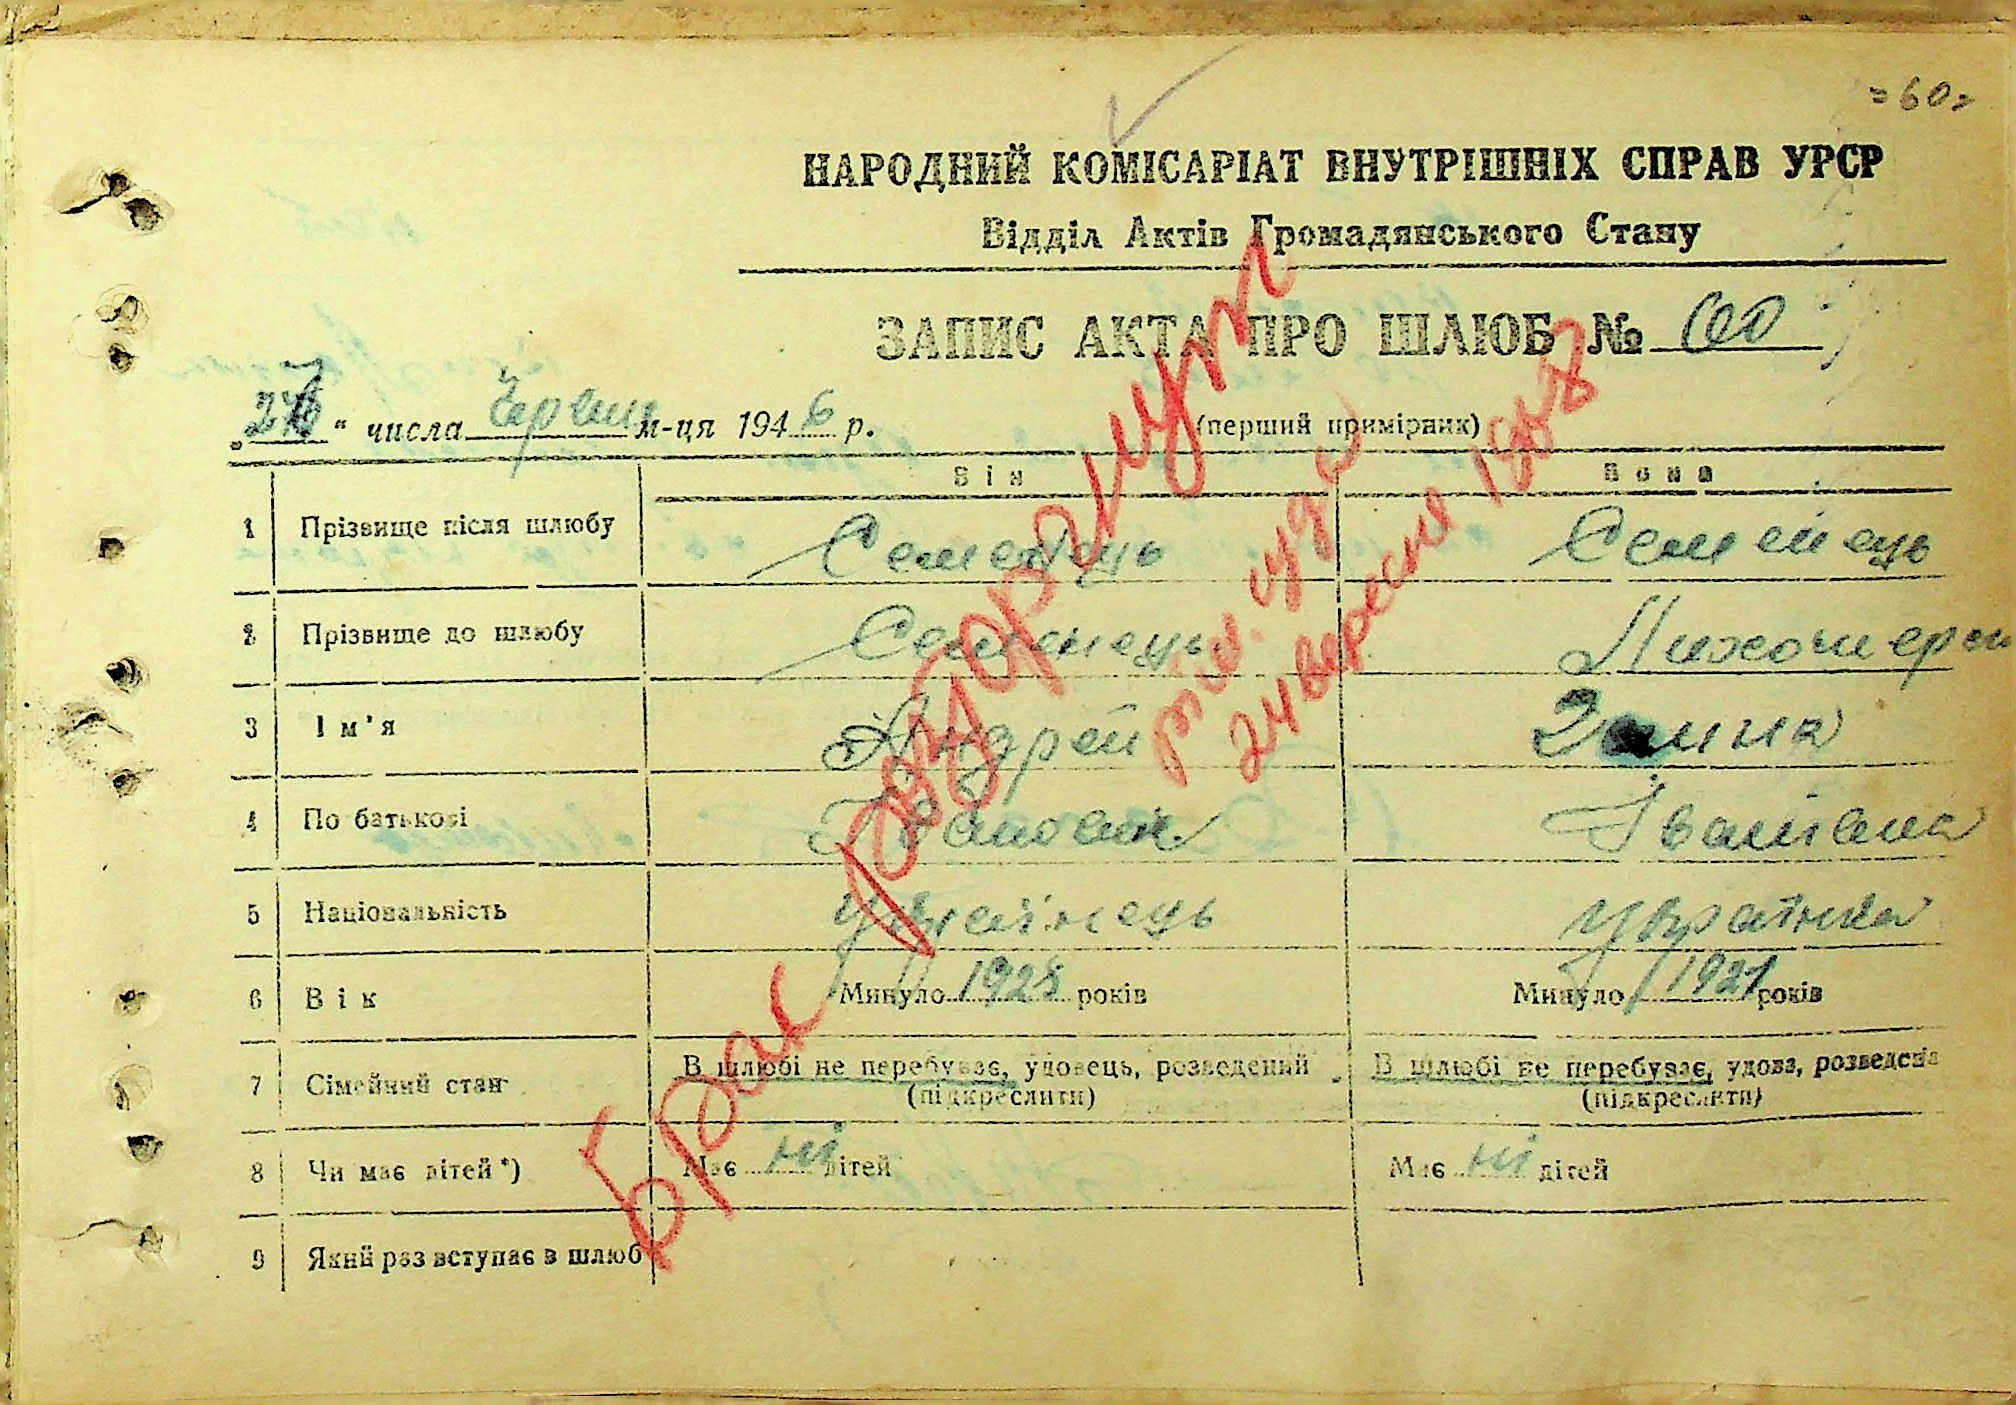 = 60 =
НАРОДНИЙ КОМІСАРІАТ ВНУТРІШНІХ СПРАВ УРСР
Відділ Актів Громадянського Стану
ЗАПИС АКТА ПРО ШЛЮБ № 60
(перший примірник)
" " числа червня м-ця 1946 р.
Він Вона
1 Прізвище після шлюбу Семенець Семенець
2 Прізвище до шлюбу Семенець
3 Ім'я Андрей
4 По батькові Іванович Іванівна
5 Національність Українець Українка
6 Вік Минуло 1928 років Минуло 1921 років
7 Сімейний стан В шлюбі не перебуває, удовець, розведений В шлюбі не перебуває, удова, розведена
(підкреслити) (підкреслити)
8 Чи має дітей*) Має ні дітей Має ні дітей
9 Який раз вступає в шлюб
Брак розторгнут
24 вересня 1947